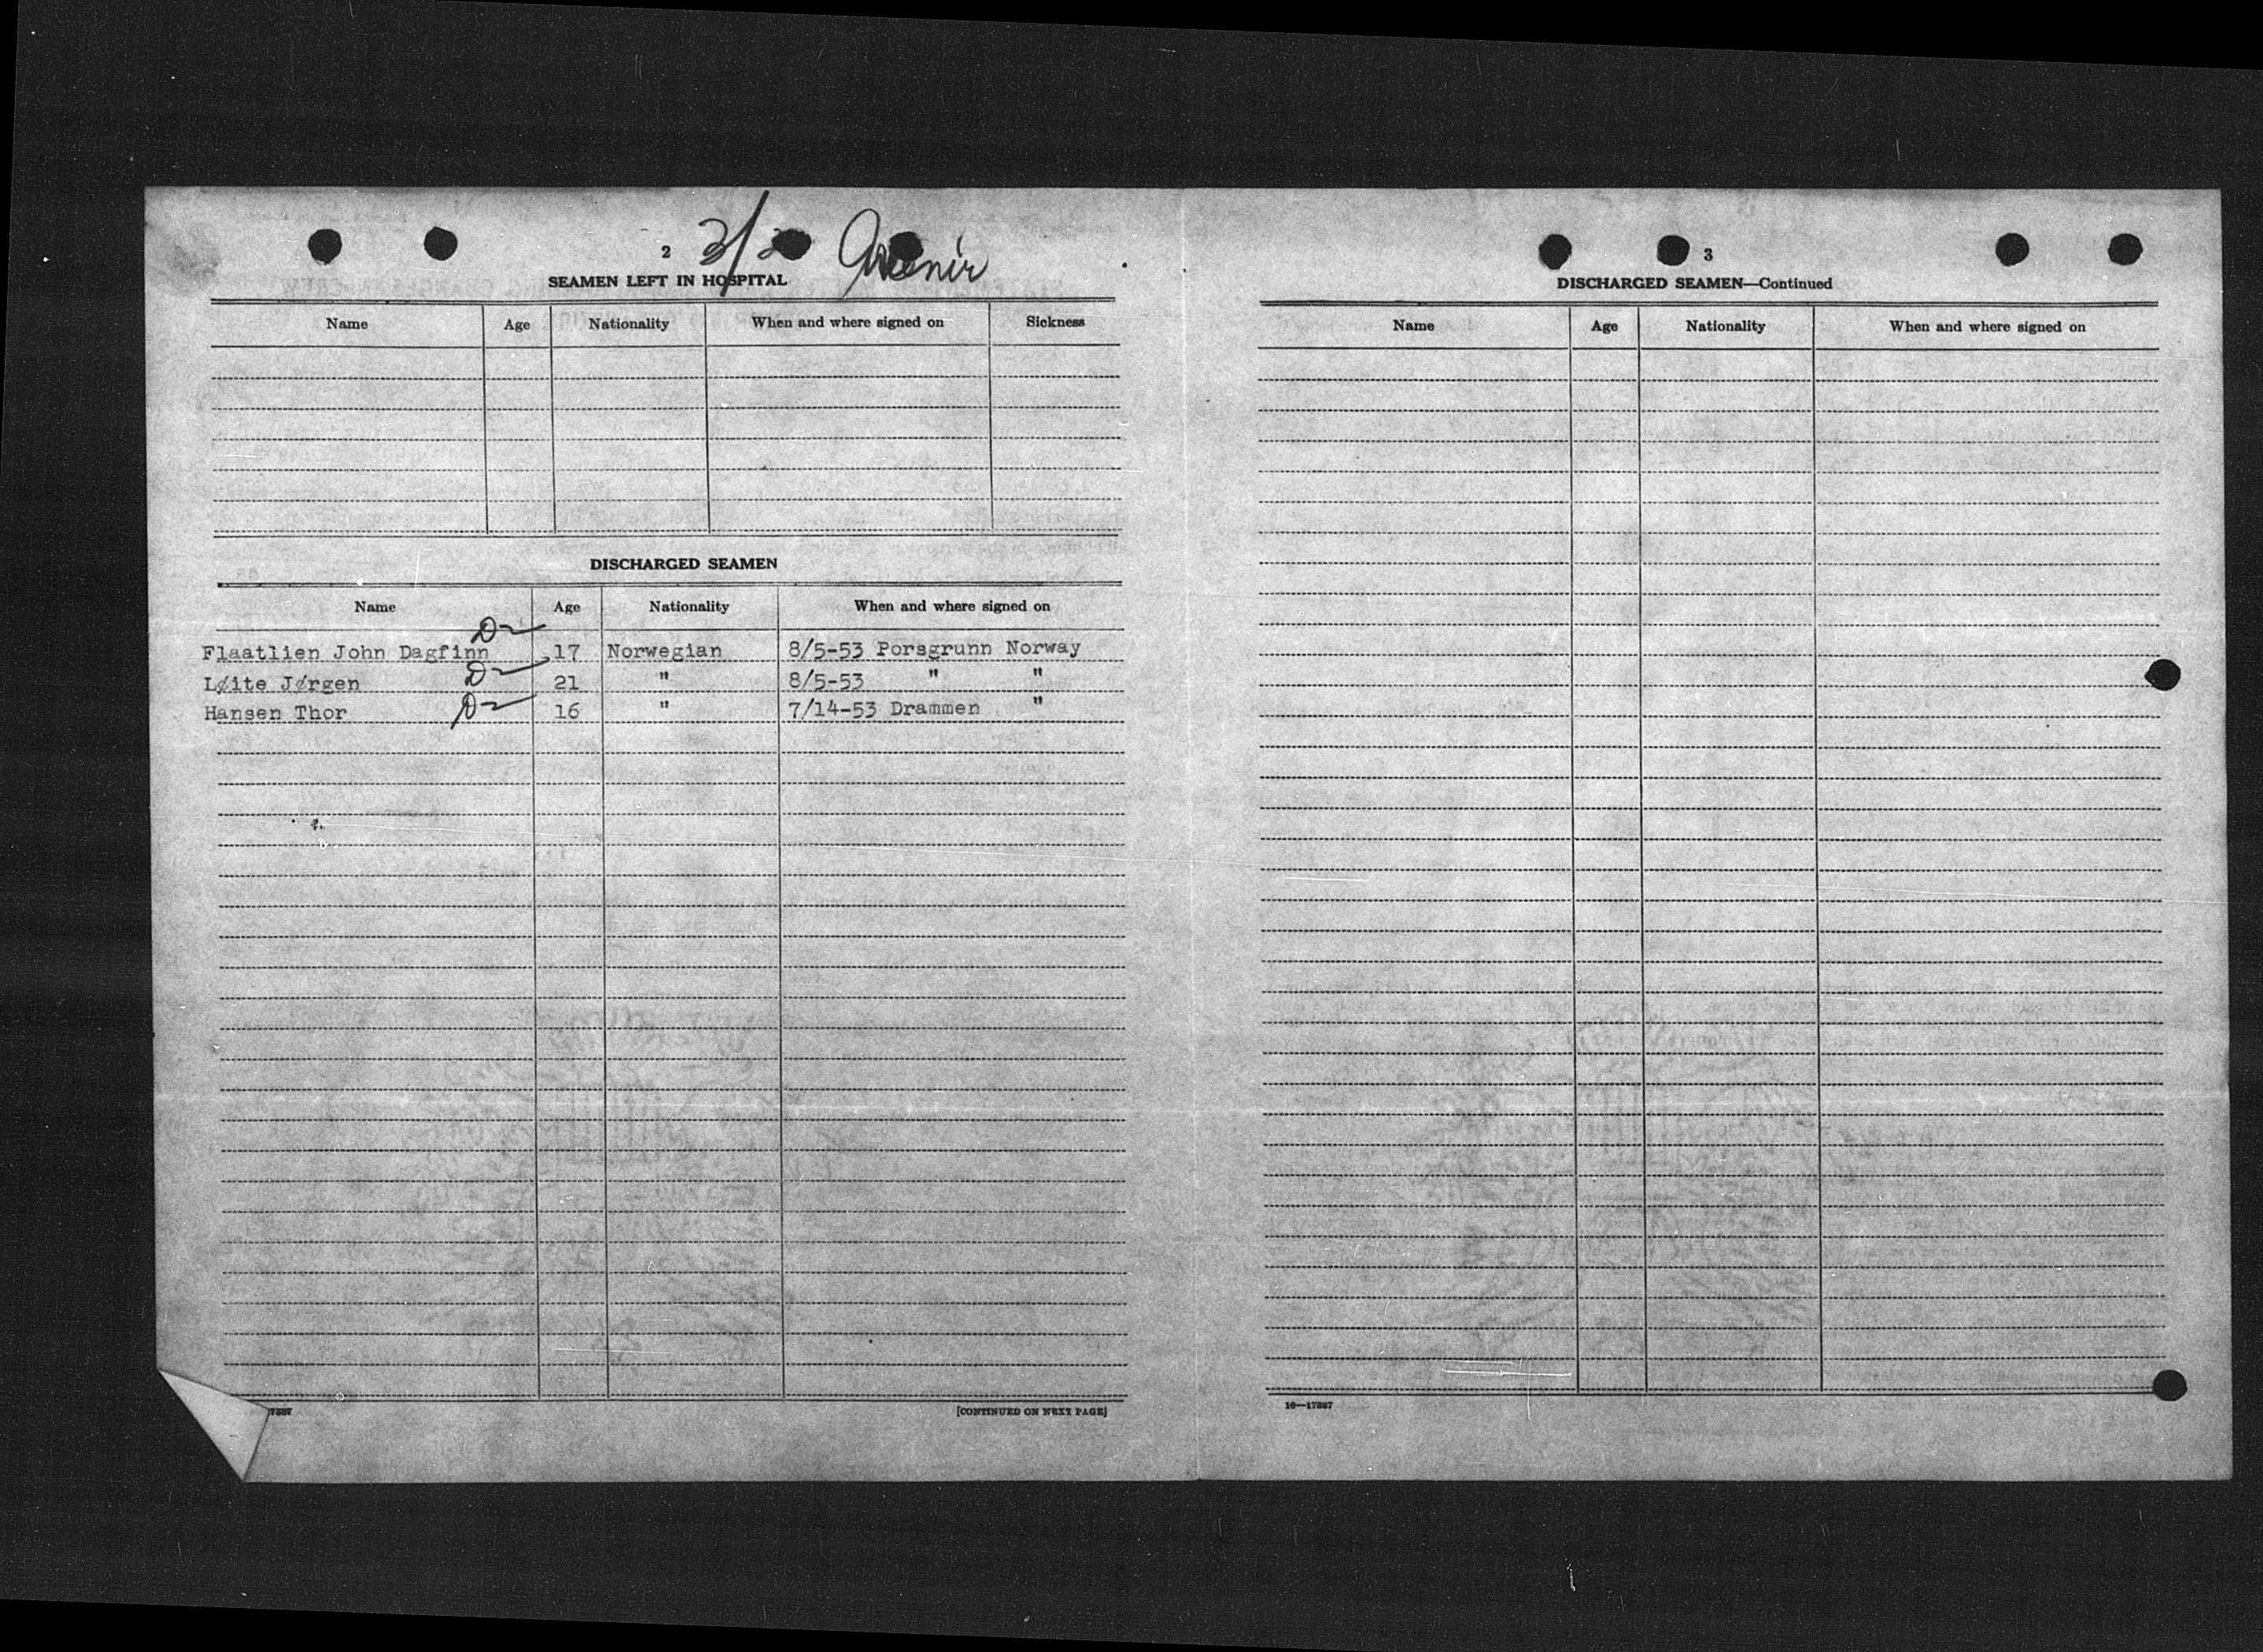 2
SEAMEN LEFT IN HOSPITAL
Name Age Nationality When and where signed on Sickness
DISCHARGED SEAMEN
Name Age Nationality When and where signed on
Flaatlien John Dagfinn 17 Norwegian 8/5-53 Porsgrunn Norway
Løite Jørgen 21 " 8/5-53 " "
Hansen Thor 16 " 7/14-53 Drammen "
7887
[CONTINUED ON NEXT PAGE]
3
DISCHARGED SEAMEN—Continued
Name Age Nationality When and where signed on
16—17887